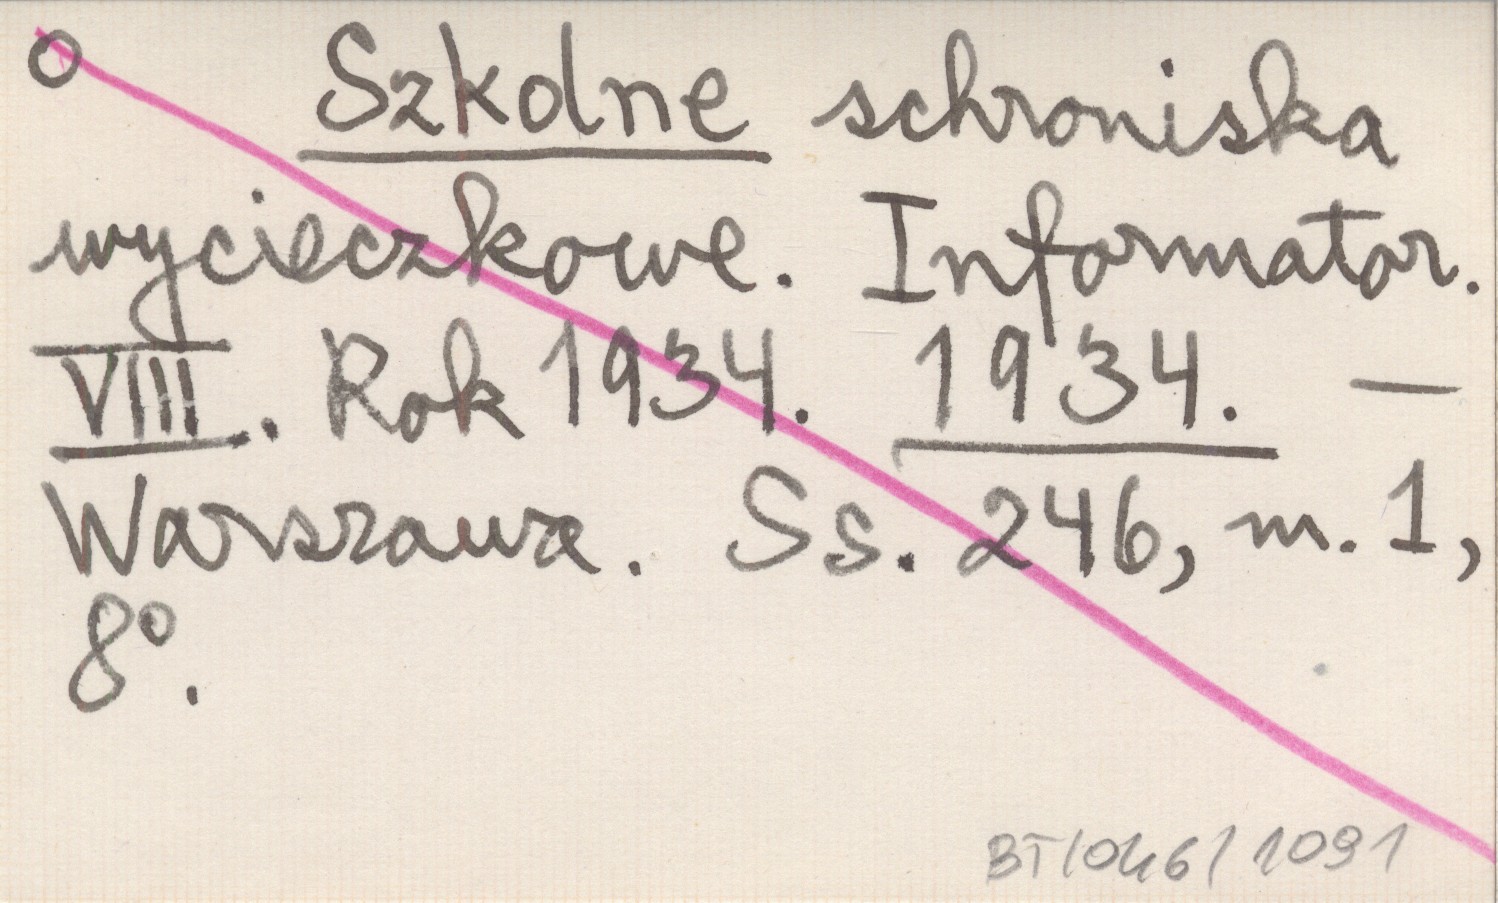 O Szkolne schroniska
wycieczkowe. Informator.
VIII. Rok 1934. 1934. —
Warszawa. Ss. 246, m. 1,
8º.
BT/046/1091